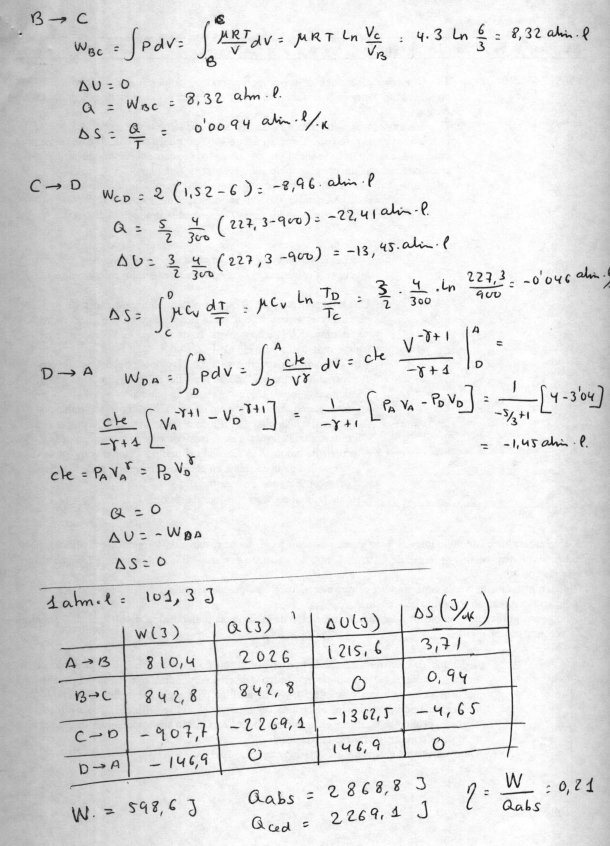 B → C
W_BC = ∫ p dV = ∫_B^C μRT/V dV = μRT Ln V_C/V_B = 4.3 Ln 6/3 = 8,32 atm.l
ΔU = 0
Q = W_BC = 8,32 atm.l.
ΔS = Q/T = 0'0094 atm.l/K
C → D W_CD = 2 (1,52 - 6) = -8,96. atm.l
Q = 5/2 4/300 (227,3 - 900) = -22,41 atm.l.
ΔU = 3/2 4/300 (227,3 - 900) = -13,45. atm.l
ΔS = ∫_C^D μCv dT/T = μCv Ln T_D/T_C = 3/2 . 4/300 . Ln 227,3/900 = -0'046 atm.l
D → A W_DA = ∫_D^A p dV = ∫_D^A cte/V^γ dV = cte V^-γ+1/-γ+1 |_D^A =
cte/-γ+1 [V_A^-γ+1 - V_D^-γ+1] = 1/-γ+1 [P_A V_A - P_D V_D] = 1/-5/3+1 [4 - 3'04]
= -1,45 atm.l.
cte = P_A V_A^γ = P_D V_D^γ
Q = 0
ΔU = - W_DA
ΔS = 0
1 atm.l = 101,3 J
W(J) Q(J) ΔU(J) ΔS(J/K)
A → B 810,4 2026 1215,6 3,71
B → C 842,8 842,8 0 0,94
C → D -907,7 -2269,1 -1362,5 -4,65
D → A -146,9 0 146,9 0
W. = 598,6 J Qabs = 2868,8 J η = W/Qabs = 0,21
Qced = 2269,1 J